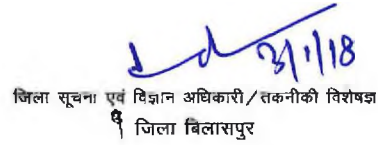 3/1/18
जिला सूचना एवं विज्ञान अधिकारी/तकनीकी विशेषज्ञ
जिला बिलासपुर